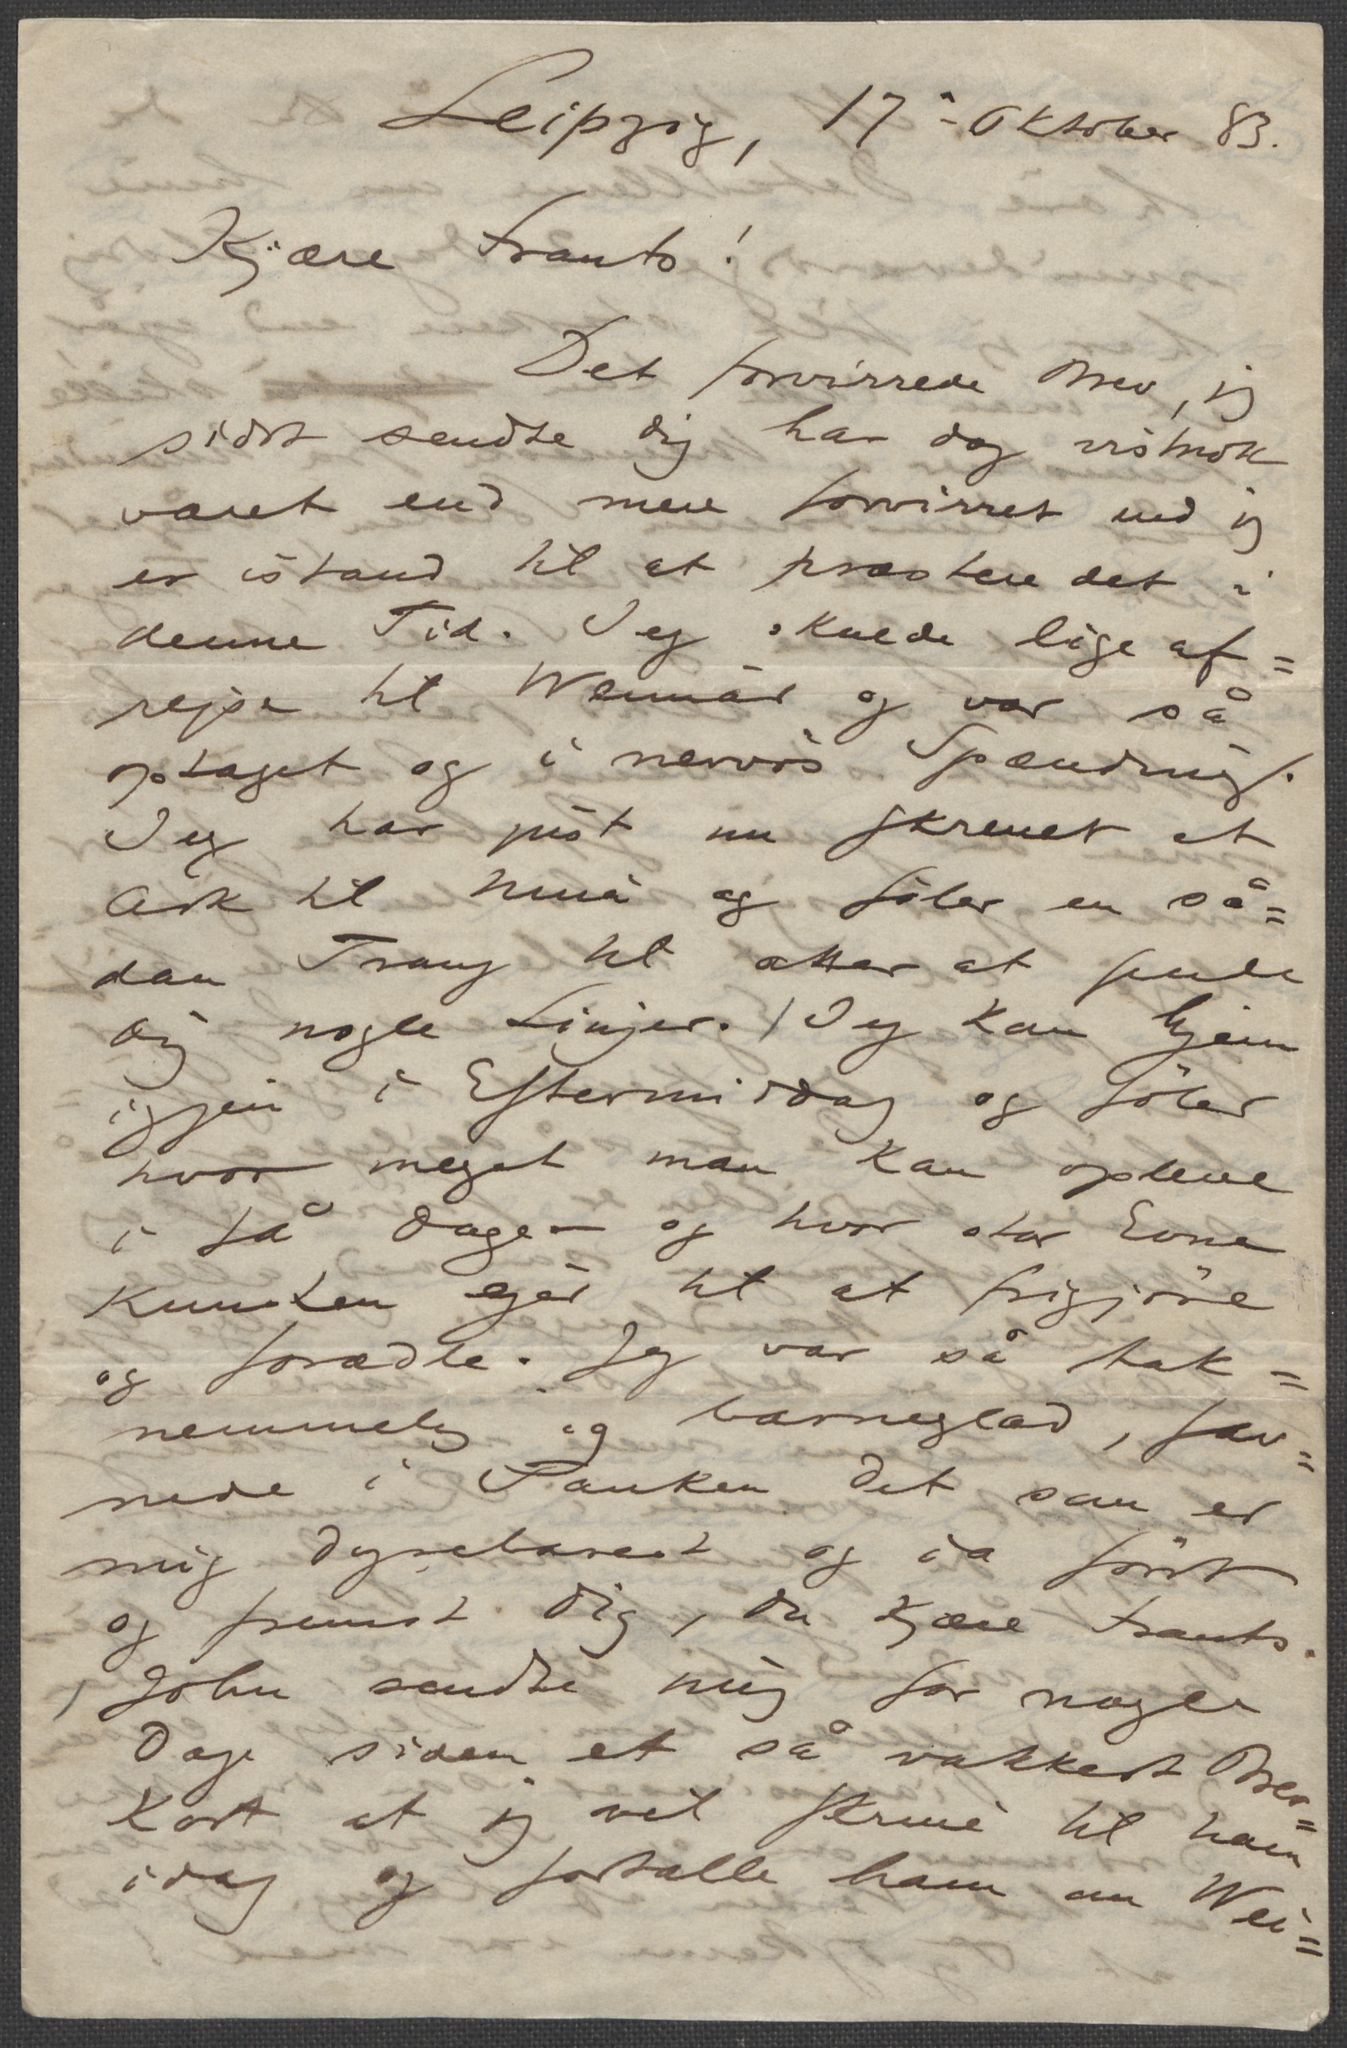 Leipzig, 17' Oktober 83.
Kjære Frants!
Det forvirrede Brev, jeg
sidst sendte dig har dog vistnok
været end mere forvirret end jeg
er istand til at præstere det i
denne Tid. Jeg skulde lige af=
rejse til Weimar og var så
optaget og i nervøs Spænding.
Jeg har just nu skrevet et
Ark til Nina og føler en så=
dan Trang til atter at sende
dig nogle Linjer. / Jeg kam hjem
igjen i Eftermiddag og føler
hvor meget man kan opleve
i få Dage – og hvor stor Evne
Kunsten ejer til at frigjøre
og forædle. Jeg var så tak=
nemmelig og barneglad, fav=
nede i Tanken det som er
mig dyrebarest og da først
og fremst dig, du kjære Frants.
/ John sendte mig for nogle
Dage siden et så vakkert Brev=
kort at jeg vil skrive til ham
idag og fortælle ham om Wei=